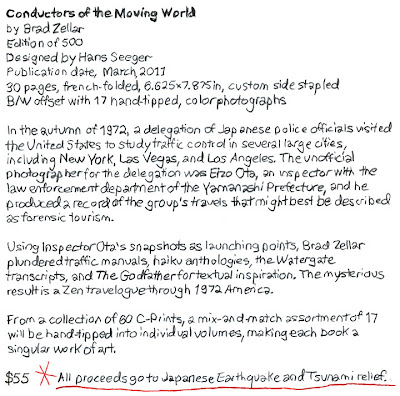 Conductors of the Moving World
by Brad Zellar
Edition of 500
Designed by Hans Seeger
Publication date, March, 2011
30 pages, french-folded, 6.625x7.875in, custom side stapled
B/W offset with 17 hand-tipped, color photographs
In the autumn of 1972, a delegation of Japanese police officials visited
the United States to study traffic control in several large cities,
including New York, Las Vegas, and Los Angeles. The unofficial
photographer for the delegation was Eizo Ota, an inspector with the
law enforcement department of the Yamanashi Prefecture, and he
produced a record of the group's travels that might best be described
as forensic tourism.
Using Inspector Ota's snapshots as launching points, Brad Zellar
plundered traffic manuals, haiku anthologies, the Watergate
transcripts, and The Godfather for textual inspiration. The mysterious
result is a Zen travelogue through 1972 America.
From a collection of 60 C-Prints, a mix-and-match assortment of 17
will be hand-tipped into individual volumes, making each book a
singular work of art.
$55 * All proceeds go to Japanese Earthquake and Tsunami relief.